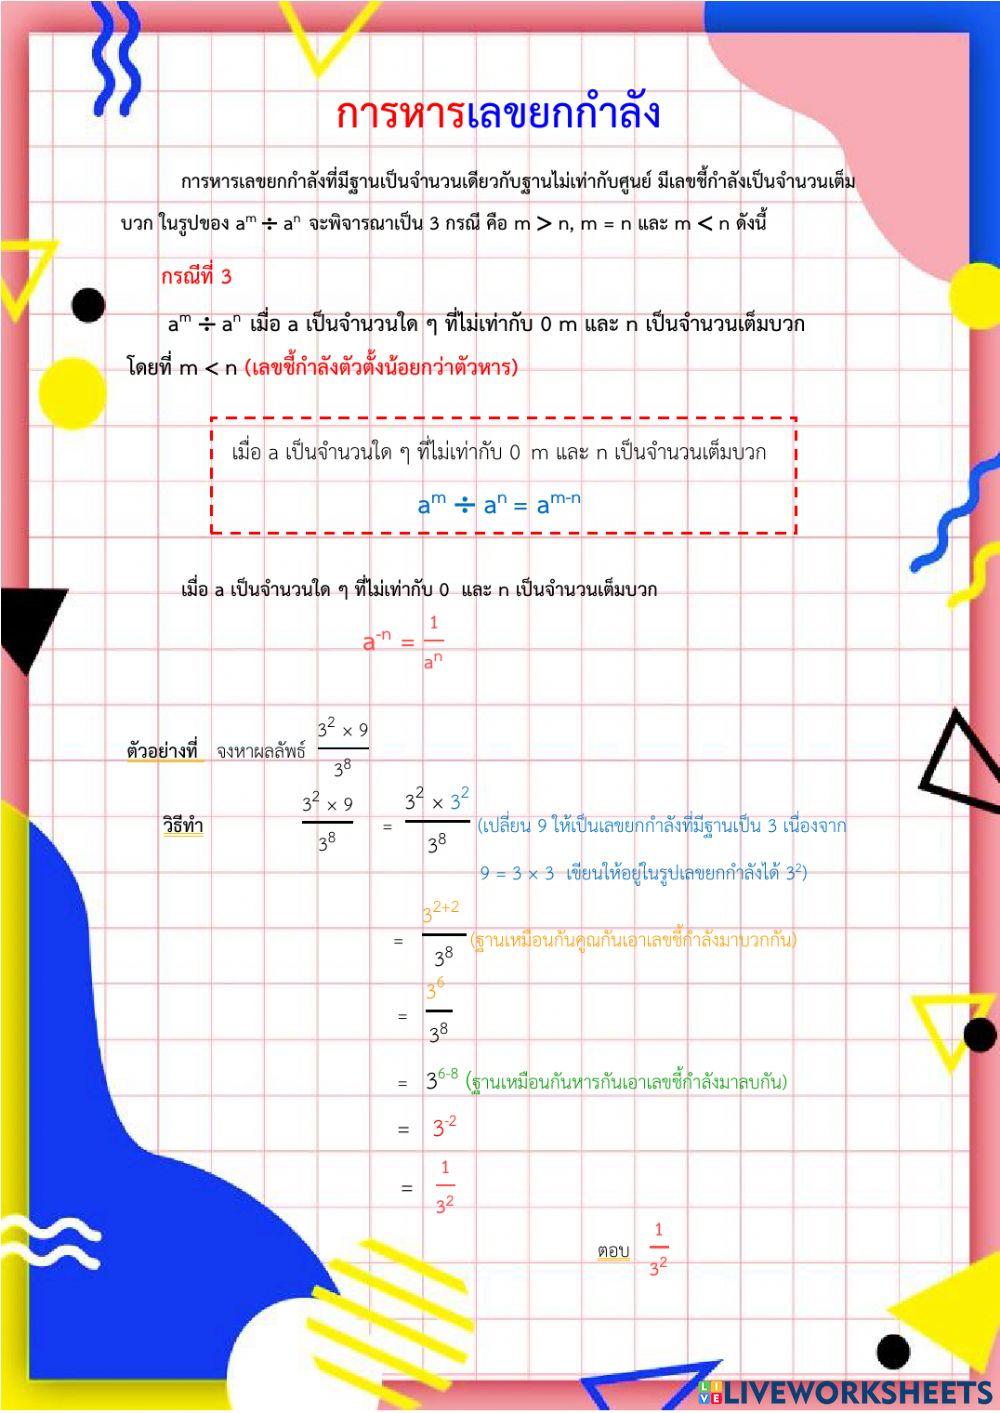 การหารเลขยกกำลัง
การหารเลขยกกำลังที่มีฐานเป็นจำนวนเดียวกับฐานไม่เท่ากับศูนย์ มีเลขชี้กำลังเป็นจำนวนเต็ม
บวก ในรูปของ aᵐ ÷ aⁿ จะพิจารณาเป็น 3 กรณี คือ m > n, m = n และ m < n ดังนี้
กรณีที่ 3
aᵐ ÷ aⁿ เมื่อ a เป็นจำนวนใด ๆ ที่ไม่เท่ากับ 0 m และ n เป็นจำนวนเต็มบวก
โดยที่ m < n (เลขชี้กำลังตัวตั้งน้อยกว่าตัวหาร)
เมื่อ a เป็นจำนวนใด ๆ ที่ไม่เท่ากับ 0 m และ n เป็นจำนวนเต็มบวก
aᵐ ÷ aⁿ = aᵐ⁻ⁿ
เมื่อ a เป็นจำนวนใด ๆ ที่ไม่เท่ากับ 0 และ n เป็นจำนวนเต็มบวก
a⁻ⁿ = 1/aⁿ
ตัวอย่างที่ จงหาผลลัพธ์ (3² × 9)/3⁸
วิธีทำ (3² × 9)/3⁸ = (3² × 3²)/3⁸ (เปลี่ยน 9 ให้เป็นเลขยกกำลังที่มีฐานเป็น 3 เนื่องจาก
9 = 3 × 3 เขียนให้อยู่ในรูปเลขยกกำลังได้ 3²)
= 3²⁺²/3⁸ (ฐานเหมือนกันคูณกันเอาเลขชี้กำลังมาบวกกัน)
= 3⁶/3⁸
= 3⁶⁻⁸ (ฐานเหมือนกันหารกันเอาเลขชี้กำลังมาลบกัน)
= 3⁻²
= 1/3²
ตอบ 1/3²
LIVEWORKSHEETS